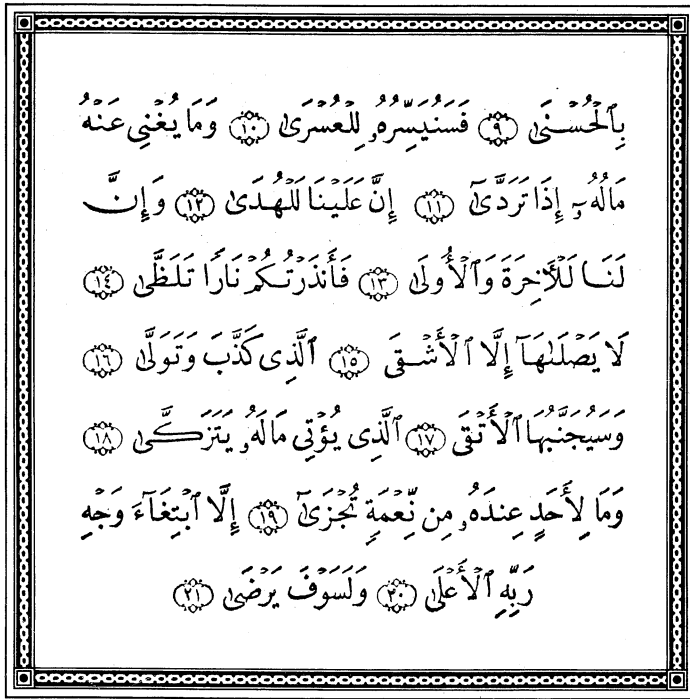 بِٱلْحُسْنَىٰ ٩ فَسَنُيَسِّرُهُۥ لِلْعُسْرَىٰ ١٠ وَمَا يُغْنِى عَنْهُ
مَالُهُۥٓ إِذَا تَرَدَّىٰٓ ١١ إِنَّ عَلَيْنَا لَلْهُدَىٰ ١٢ وَإِنَّ
لَنَا لَلْآخِرَةَ وَٱلْأُولَىٰ ١٣ فَأَنذَرْتُكُمْ نَارًا تَلَظَّىٰ ١٤
لَا يَصْلَىٰهَآ إِلَّا ٱلْأَشْقَى ١٥ ٱلَّذِى كَذَّبَ وَتَوَلَّىٰ ١٦
وَسَيُجَنَّبُهَا ٱلْأَتْقَى ١٧ ٱلَّذِى يُؤْتِى مَالَهُۥ يَتَزَكَّىٰ ١٨
وَمَا لِأَحَدٍ عِندَهُۥ مِن نِّعْمَةٍ تُجْزَىٰٓ ١٩ إِلَّا ٱبْتِغَآءَ وَجْهِ
رَبِّهِ ٱلْأَعْلَىٰ ٢٠ وَلَسَوْفَ يَرْضَىٰ ٢١